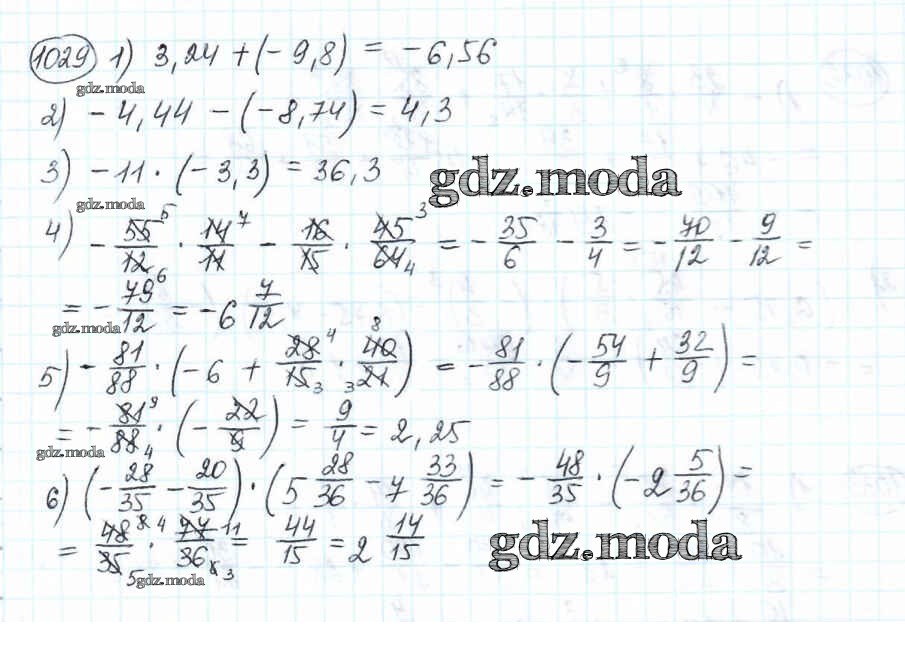 1029 1) 3,24 + (- 9,8) = - 6,56
gdz.moda
2) - 4,44 - (-8,74) = 4,3
3) - 11 · (- 3,3) = 36,3
gdz.moda
gdz.moda
4) - 55/12 · 14/11 - 16/15 · 45/64 = - 35/6 - 3/4 = - 70/12 - 9/12 =
= - 79/12 = - 6 7/12
gdz.moda
5) - 81/88 · (- 6 + 28/15 · 40/21) = - 81/88 · (- 54/9 + 32/9) =
= - 81/88 · (- 22/9) = 9/4 = 2,25
gdz.moda
6) (- 28/35 - 20/35) · (5 28/36 - 7 33/36) = - 48/35 · (- 2 5/36) =
= 48/35 · 77/36 = 44/15 = 2 14/15
gdz.moda
gdz.moda